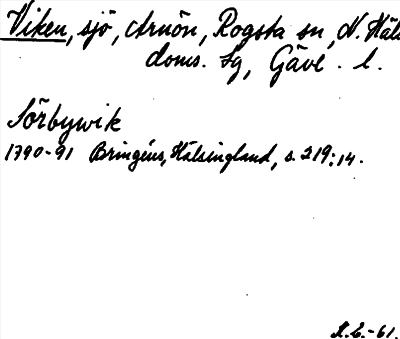 Viken, sjö, Arnön, Rogsta sn, N. Häls
doms. Sg, Gävl. l.
Sörbywik
1790-91 Bringéus, Hälsingland, s. 219:14.
-61.